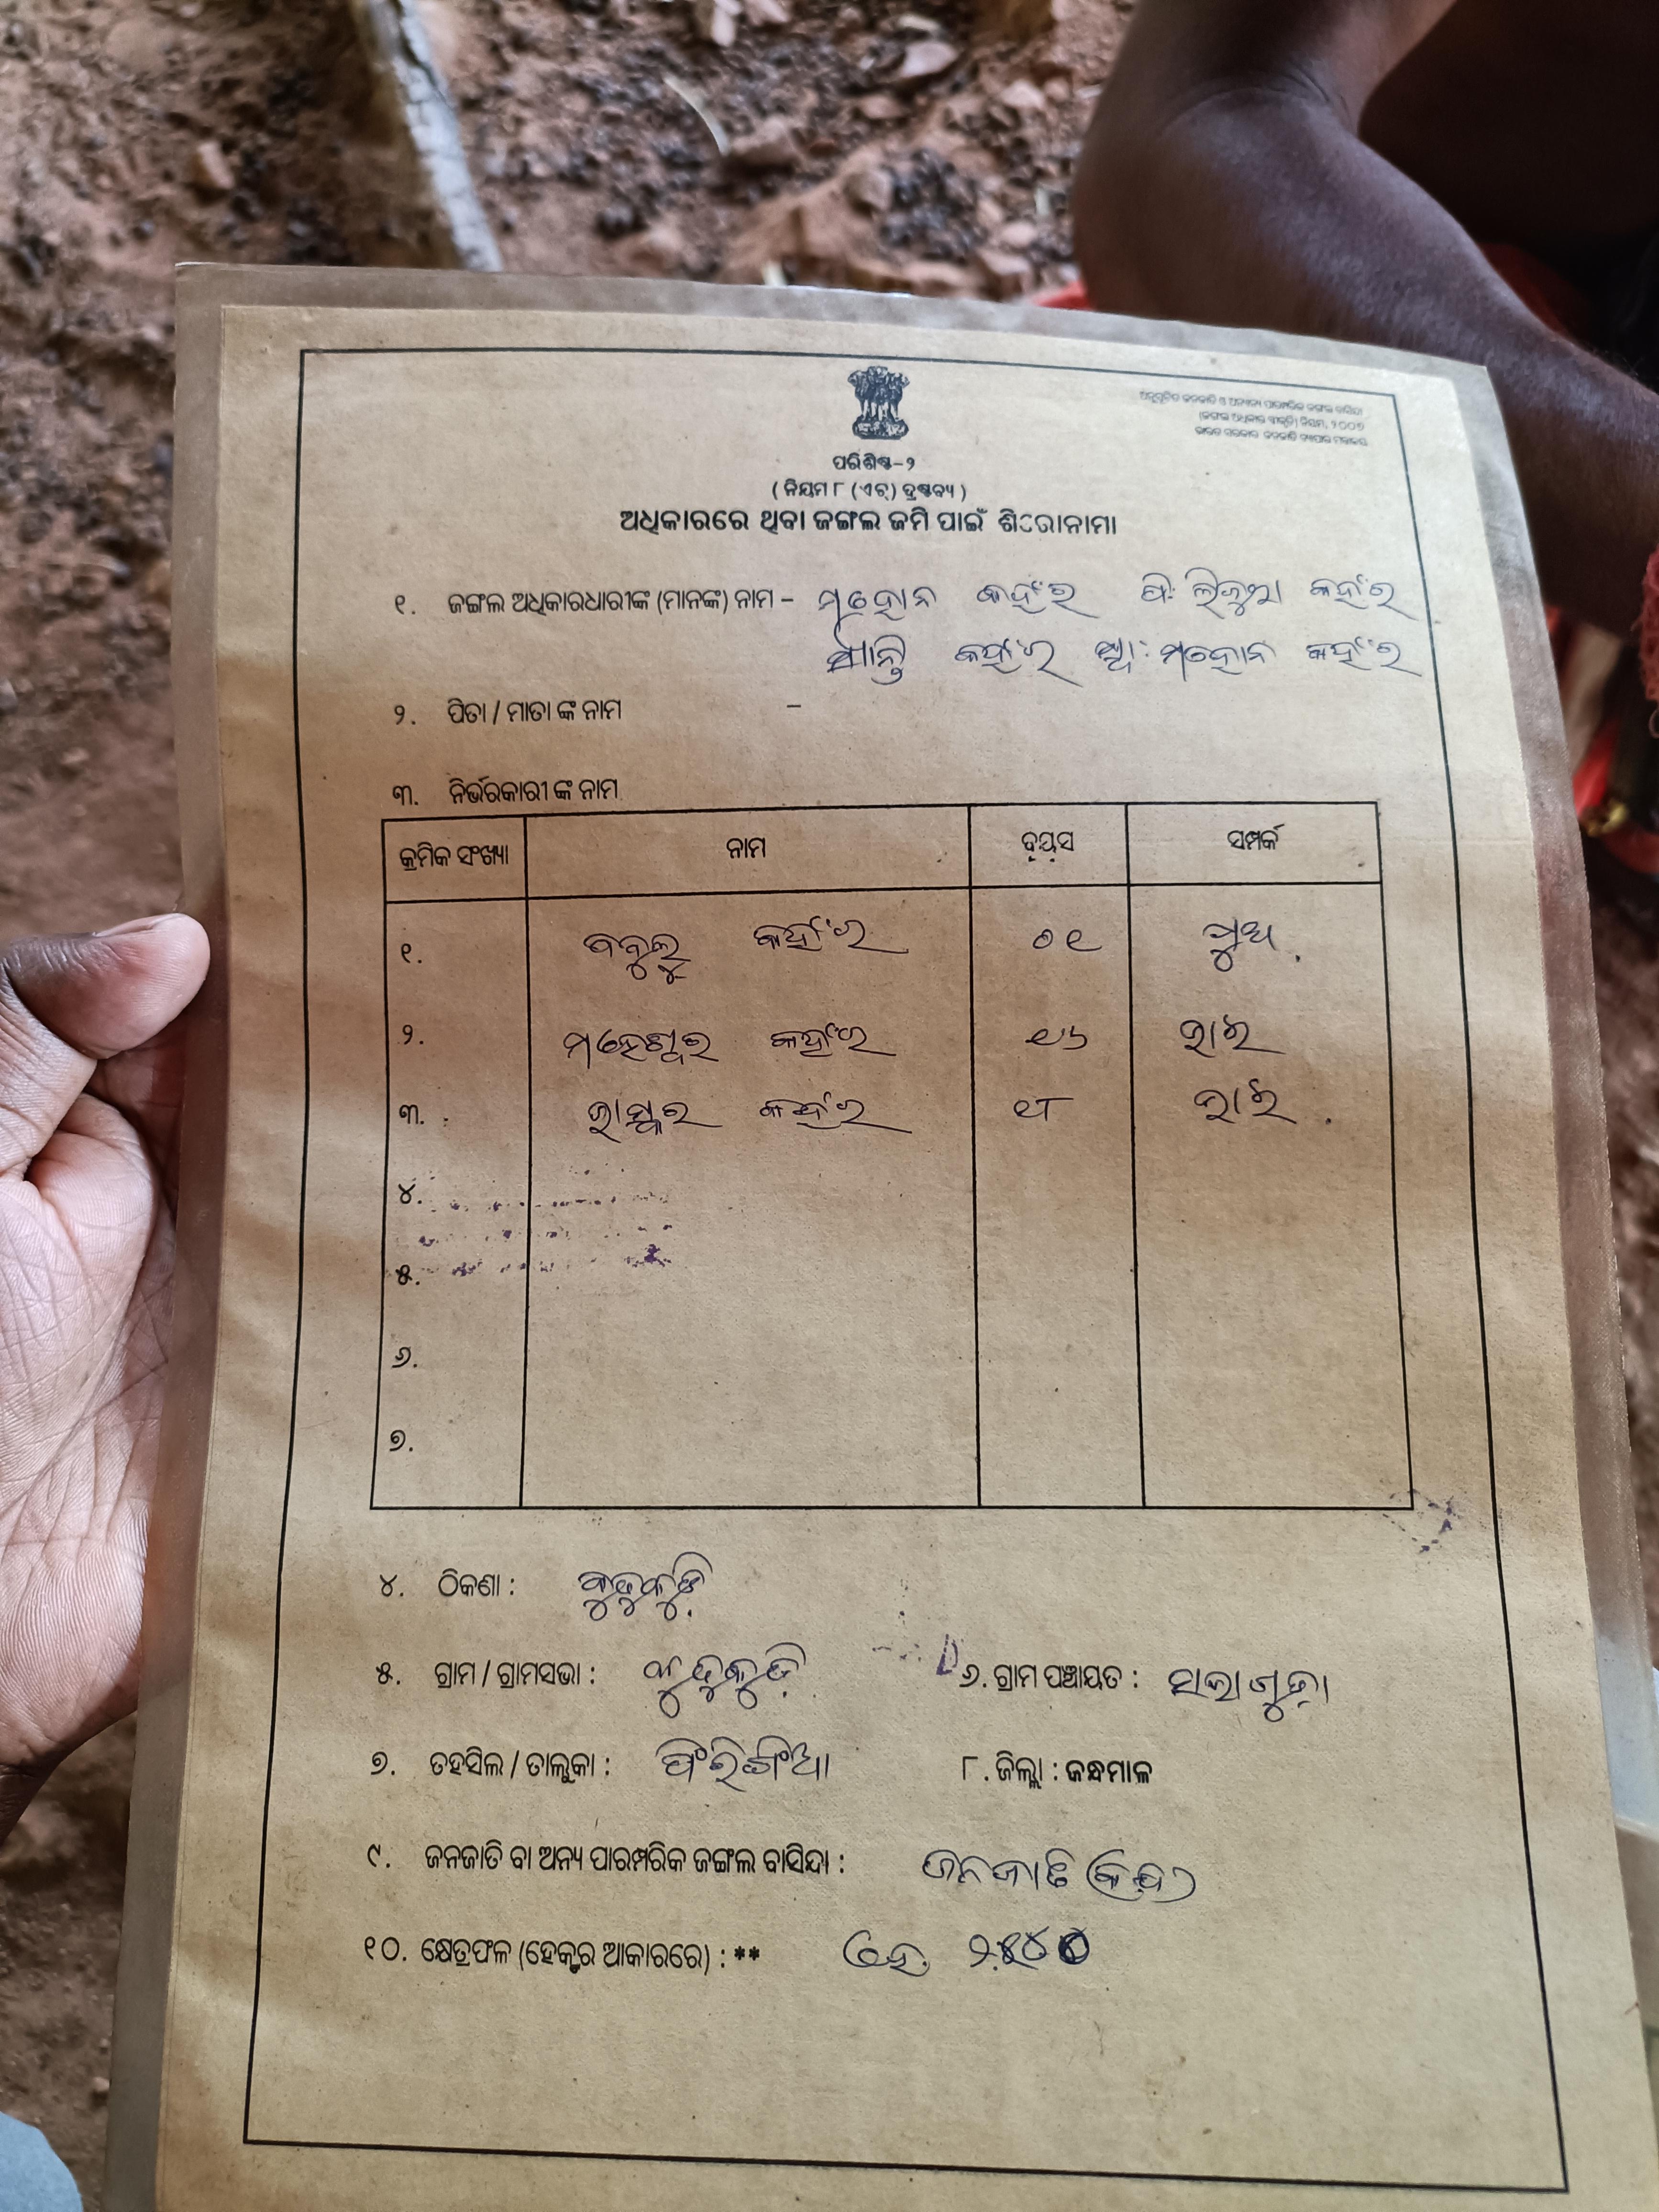 ଅନୁସୂଚିତ ଜନଜାତି ଓ ଅନ୍ୟାନ୍ୟ ପାରମ୍ପରିକ ଜଙ୍ଗଲ ବାସିନ୍ଦା
(ଜଙ୍ଗଲ ଅଧିକାର ସ୍ୱୀକୃତି) ନିୟମ, ୨୦୦୭
ଭାରତ ସରକାର ଜନଜାତି ବ୍ୟାପାର ମନ୍ତ୍ରାଳୟ
ପରିଶିଷ୍ଟ-୨
( ନିୟମ ୮ (ଏଚ୍) ଦ୍ରଷ୍ଟବ୍ୟ )
ଅଧିକାରରେ ଥିବା ଜଙ୍ଗଲ ଜମି ପାଇଁ ଶିରୋନାମା
୧. ଜଙ୍ଗଲ ଅଧିକାରଧାରୀଙ୍କ (ମାନଙ୍କ) ନାମ - ମୋହନ କହଁର ପି: କହଁର
ଶାନ୍ତି କହଁର ସ୍ୱା: ମୋହନ କହଁର
୨. ପିତା / ମାତା ଙ୍କ ନାମ -
୩. ନିର୍ଭରକାରୀ ଙ୍କ ନାମ
କ୍ରମିକ ସଂଖ୍ୟା ନାମ ବୟସ ସମ୍ପର୍କ
୧. ବବୁଲୁ କହଁର ୦୧ ପୁଅ
୨. ମହେଶ୍ୱର କହଁର ୧୬ ଭାଇ
୩. ଭାସ୍କର କହଁର ୧୮ ଭାଇ
୪.
୫.
୬.
୭.
୪. ଠିକଣା : କୁଦୁକୁଡ଼ି
୫. ଗ୍ରାମ / ଗ୍ରାମସଭା : କୁଦୁକୁଡ଼ି ୬. ଗ୍ରାମ ପଞ୍ଚାୟତ : ସଲାଗୁଡ଼ା
୭. ତହସିଲ / ତାଲୁକା : ଫିରିଙ୍ଗିଆ ୮. ଜିଲ୍ଲା : କନ୍ଧମାଳ
୯. ଜନଜାତି ବା ଅନ୍ୟ ପାରମ୍ପରିକ ଜଙ୍ଗଲ ବାସିନ୍ଦା : ଜନଜାତି (କନ୍ଧ)
୧୦. କ୍ଷେତ୍ରଫଳ (ହେକ୍ଟର ଆକାରରେ) : ** ହେ.